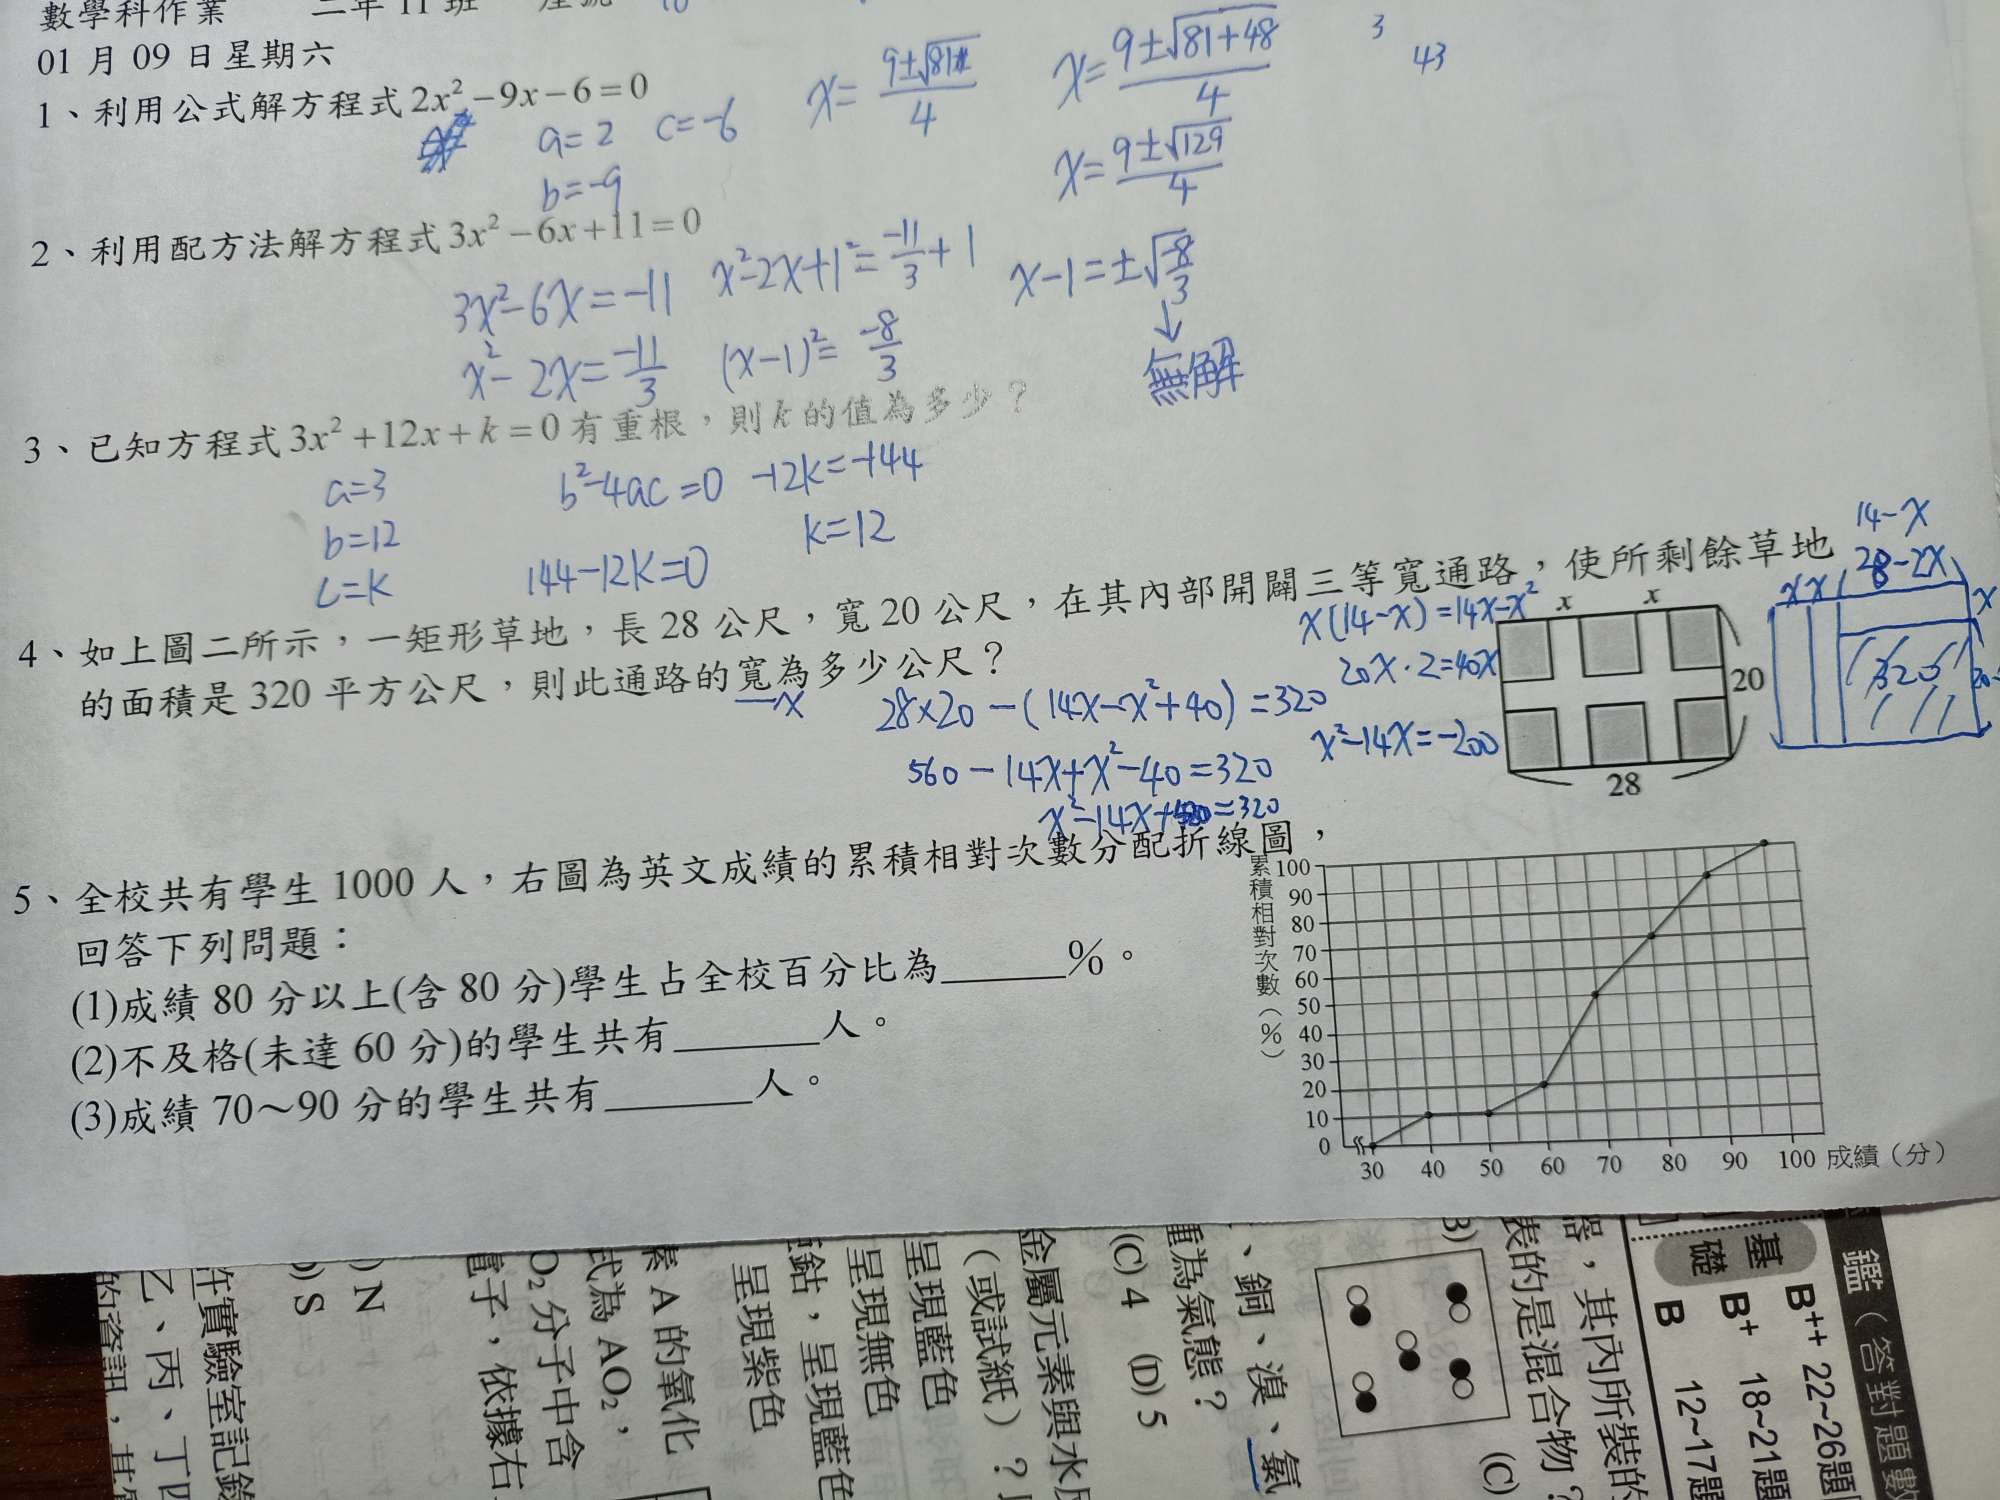 數學科作業 二年 11 班 座號 10
01 月 09 日星期六
1、利用公式解方程式 2x²－9x－6＝0
a=2 c=-6
b=-9
x= 9±√81+ / 4
x= 9±√81+48 / 4
x= 9±√129 / 4
3
43
2、利用配方法解方程式 3x²－6x+11＝0
3x²-6x=-11
x²-2x= -11/3
x²-2x+1²= -11/3 +1
(x-1)²= -8/3
x-1=±√-8/3
↓
無解
3、已知方程式 3x²+12x+k＝0 有重根，則 k 的值為多少？
a=3
b=12
c=k
b²-4ac=0
144-12k=0
-12k=-144
k=12
4、如上圖二所示，一矩形草地，長 28 公尺，寬 20 公尺，在其內部開闢三等寬通路，使所剩餘草地
的面積是 320 平方公尺，則此通路的寬為多少公尺？
x
28×20-(14x-x²+40)=320
560-14x+x²-40=320
x²-14x+520=320
x(14-x)=14x-x²
20x·2=40x
x²-14x=-200
x x
20
28
14-x
28-2x
x x
x
320
5、全校共有學生 1000 人，右圖為英文成績的累積相對次數分配折線圖，
回答下列問題：
(1)成績 80 分以上(含 80 分)學生占全校百分比為______%。
(2)不及格(未達 60 分)的學生共有_______人。
(3)成績 70～90 分的學生共有_______人。
累積相對次數（%）
100
90
80
70
60
50
40
30
20
10
0
30 40 50 60 70 80 90 100 成績（分）
鑑（答對題數
基礎
B++ 22~26題
B+ 18~21題
B 12~17題
器，其內所裝的
表的是混合物？
(C)
、銅、溴、氯
重為氣態？
(C) 4 (D) 5
金屬元素與水
（或試紙）？
呈現藍色
呈現無色
鈷，呈現藍色
呈現紫色
素 A 的氧化
式為 AO₂，
O₂ 分子中含
電子，依據右
) N
) S
在實驗室記錄
乙、丙、丁四
的資訊，其